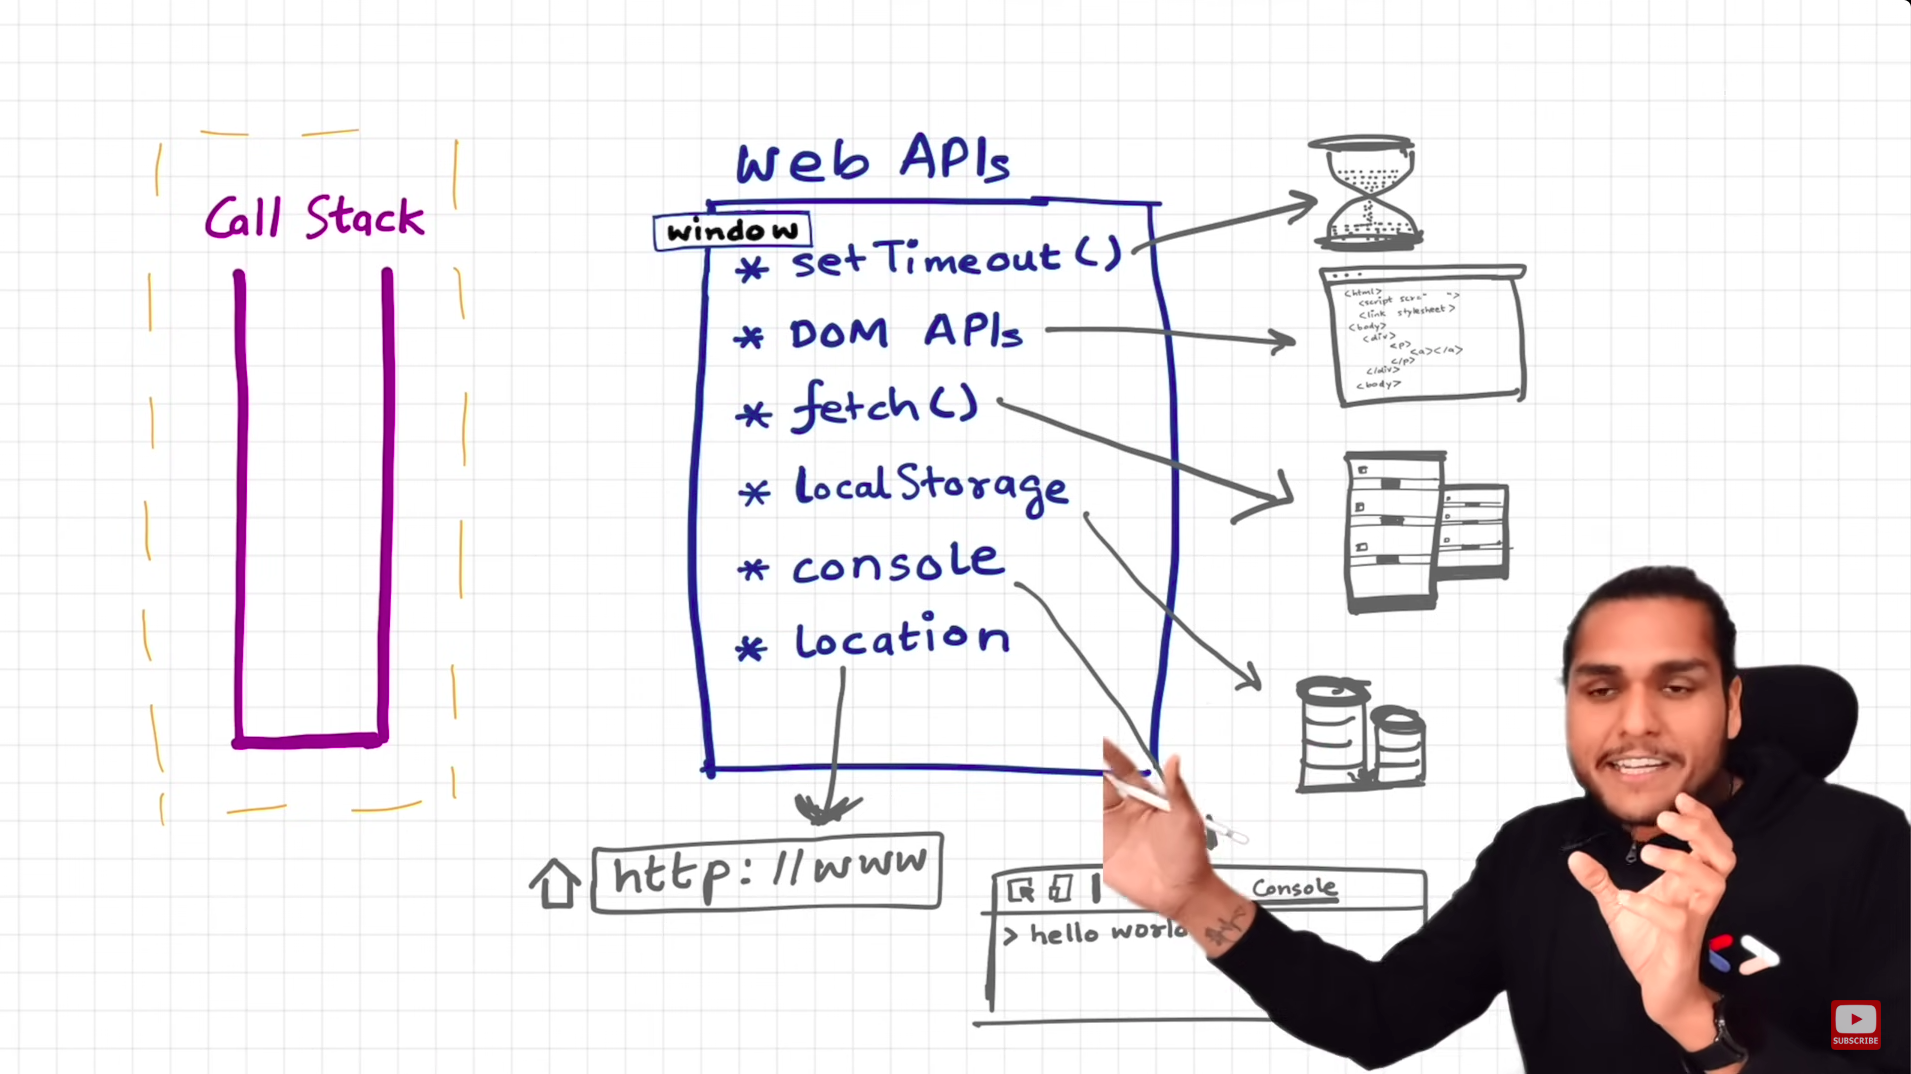 Call Stack
Web APIs
window
* setTimeout()
* DOM APIs
* fetch()
* localStorage
* console
* location
http://www
<html>
<script scr=" ">
<link stylesheet>
<body>
<div>
<p>
<a></a>
</p>
</div>
<body>
Console
> hello world
SUBSCRIBE